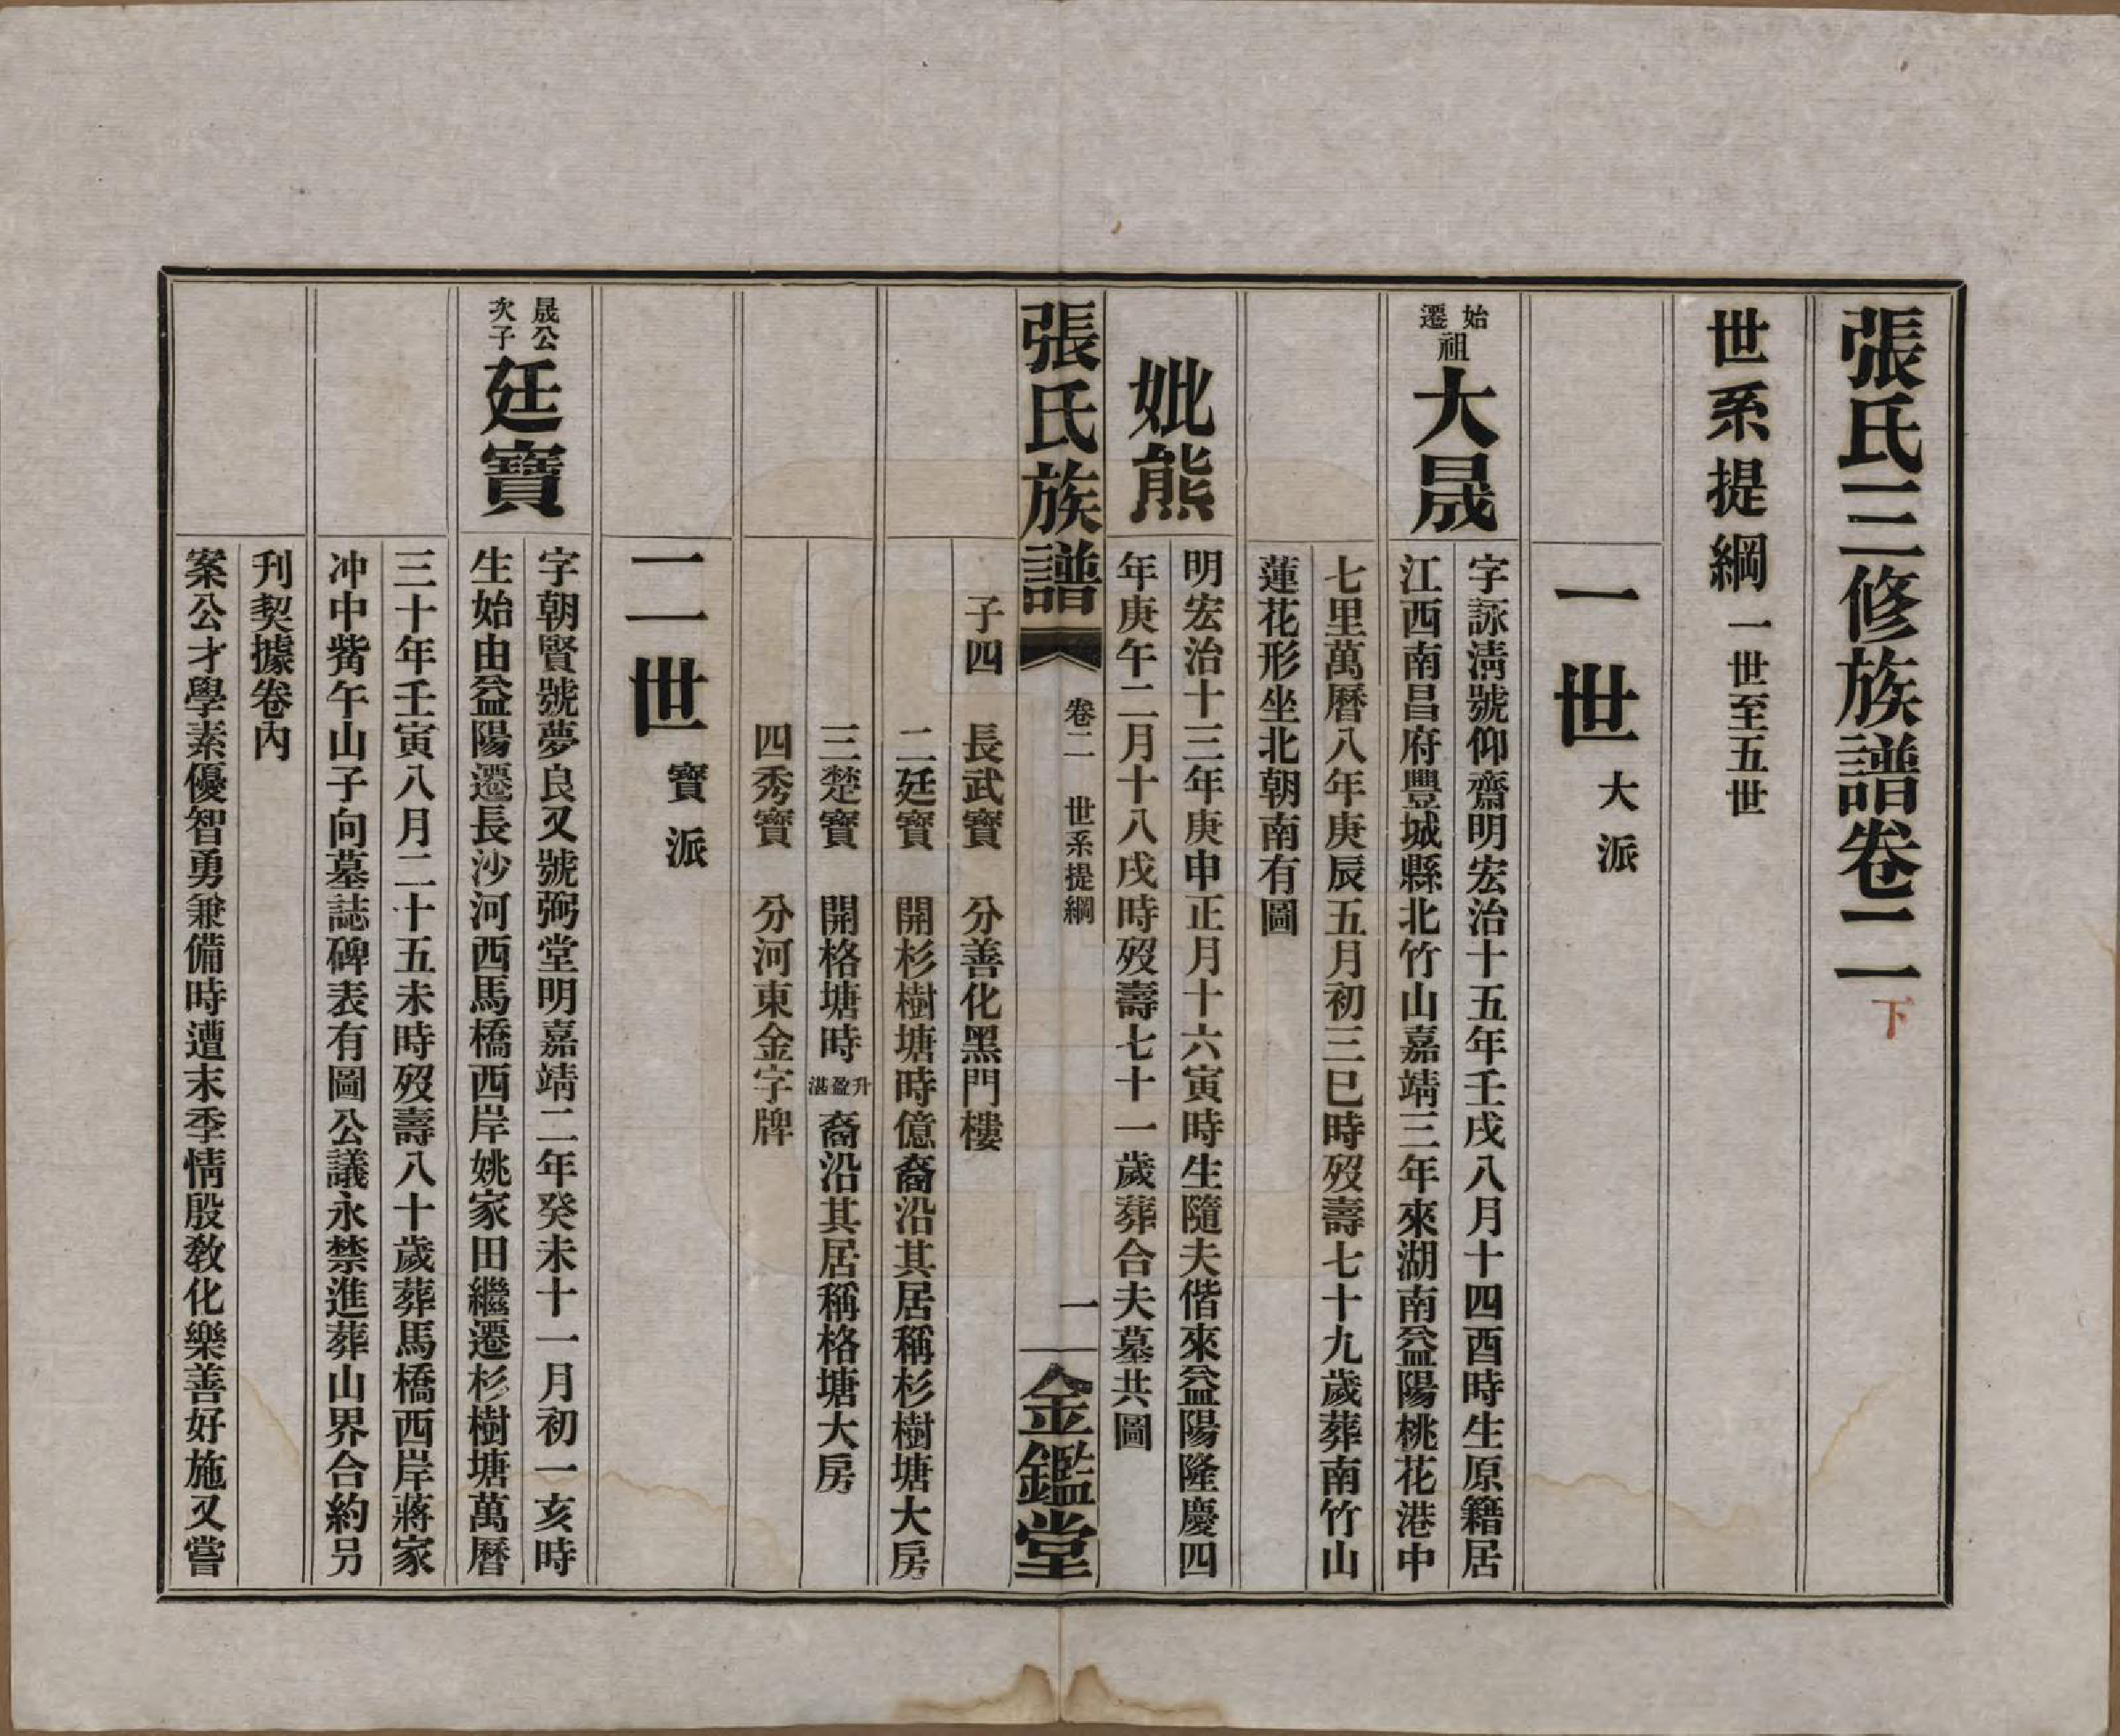 張氏三修族譜卷二 下
世系提綱 一世至五世
一世 大派
始遷祖 大晟
字詠清號仰齋明宏治十五年壬戌八月十四酉時生原籍居
江西南昌府豐城縣北竹山嘉靖三年來湖南益陽桃花港中
七里萬曆八年庚辰五月初三巳時歿壽七十九歲葬南竹山
蓮花形坐北朝南有圖
妣熊
明宏治十三年庚申正月十六寅時生隨夫偕來益陽隆慶四
年庚午二月十八戌時歿壽七十一歲葬合夫墓共圖
張氏族譜 卷二 世系提綱 一 金鑑堂
子四 長武寶 分善化黑門樓
二廷寶 開杉樹塘時億裔沿其居稱杉樹塘大房
三楚寶 開格塘時升盈湛裔沿其居稱格塘大房
四秀寶 分河東金字牌
二世 寶派
晟公次子 廷寶
字朝賢號夢良又號弼堂明嘉靖二年癸未十一月初一亥時
生始由益陽遷長沙河西馬橋西岸姚家田繼遷杉樹塘萬曆
三十年壬寅八月二十五未時歿壽八十歲葬馬橋西岸蔣家
冲中觜午山子向墓誌碑表有圖公議永禁進葬山界合約另
刋契據卷內
案公才學素優智勇兼備時遭末季情殷教化樂善好施又嘗